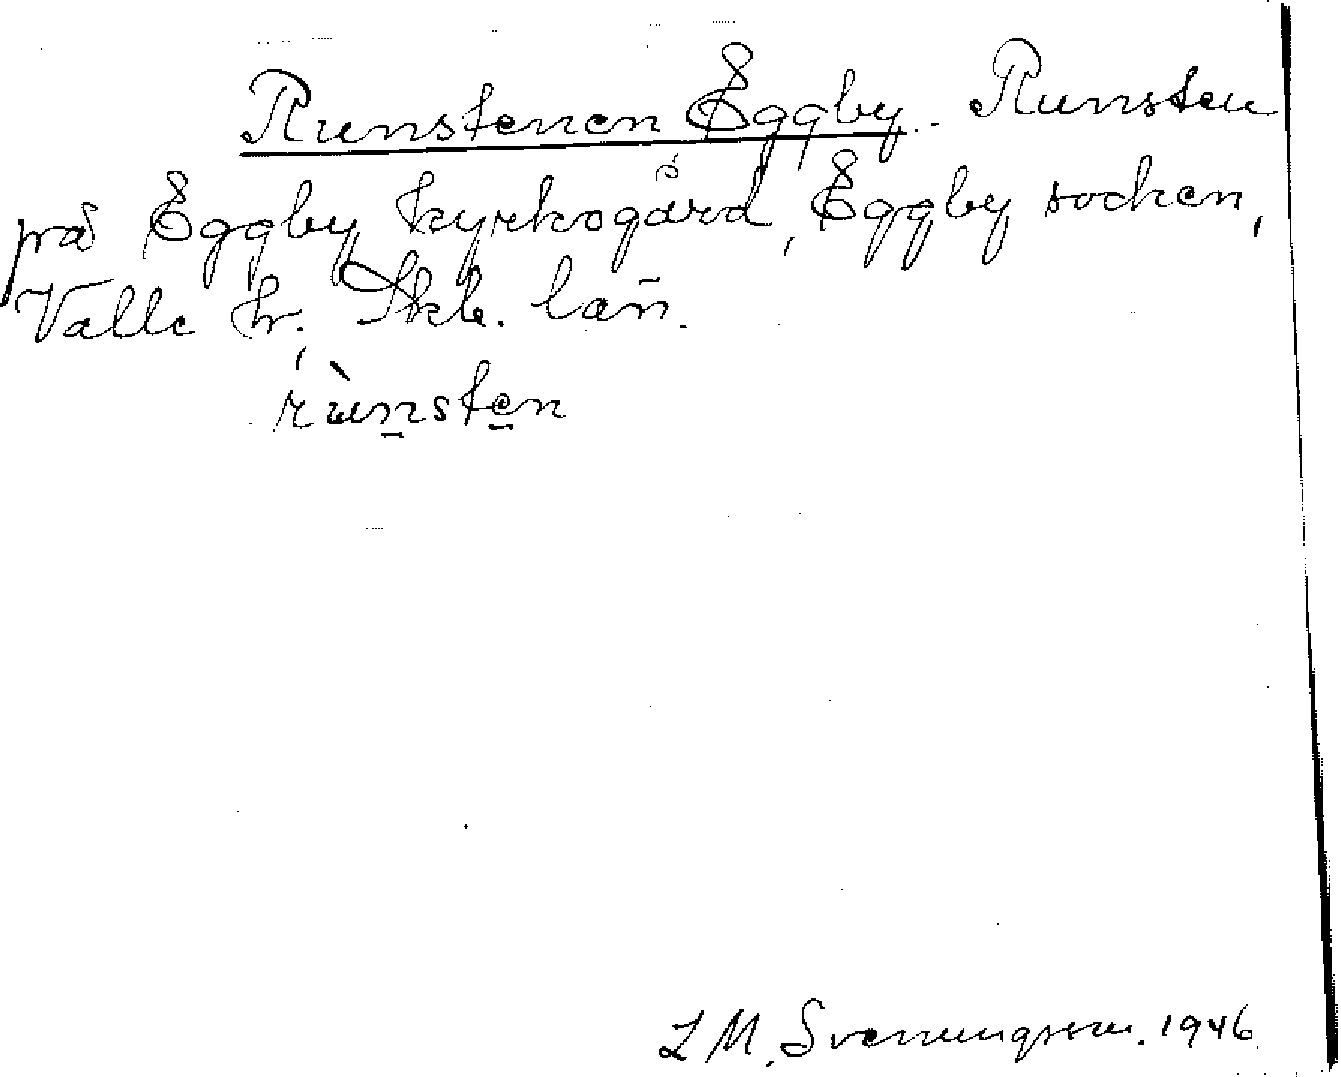 Runstenen Eggby. Runsten
på Eggby kyrkogård, Eggby socken,
Valle hr, Skb. län.
rùnsten
L M. Svenungsson. 1946